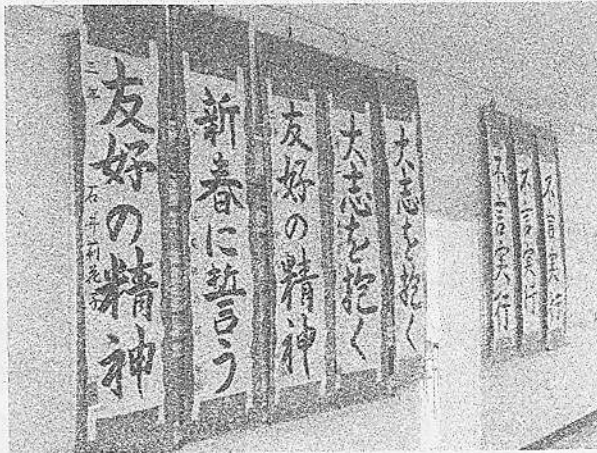 友好の精神
三年 石井莉花
新春に誓う
友好の精神
大志を抱く
大志を抱く
不言実行
不言実行
不言実行